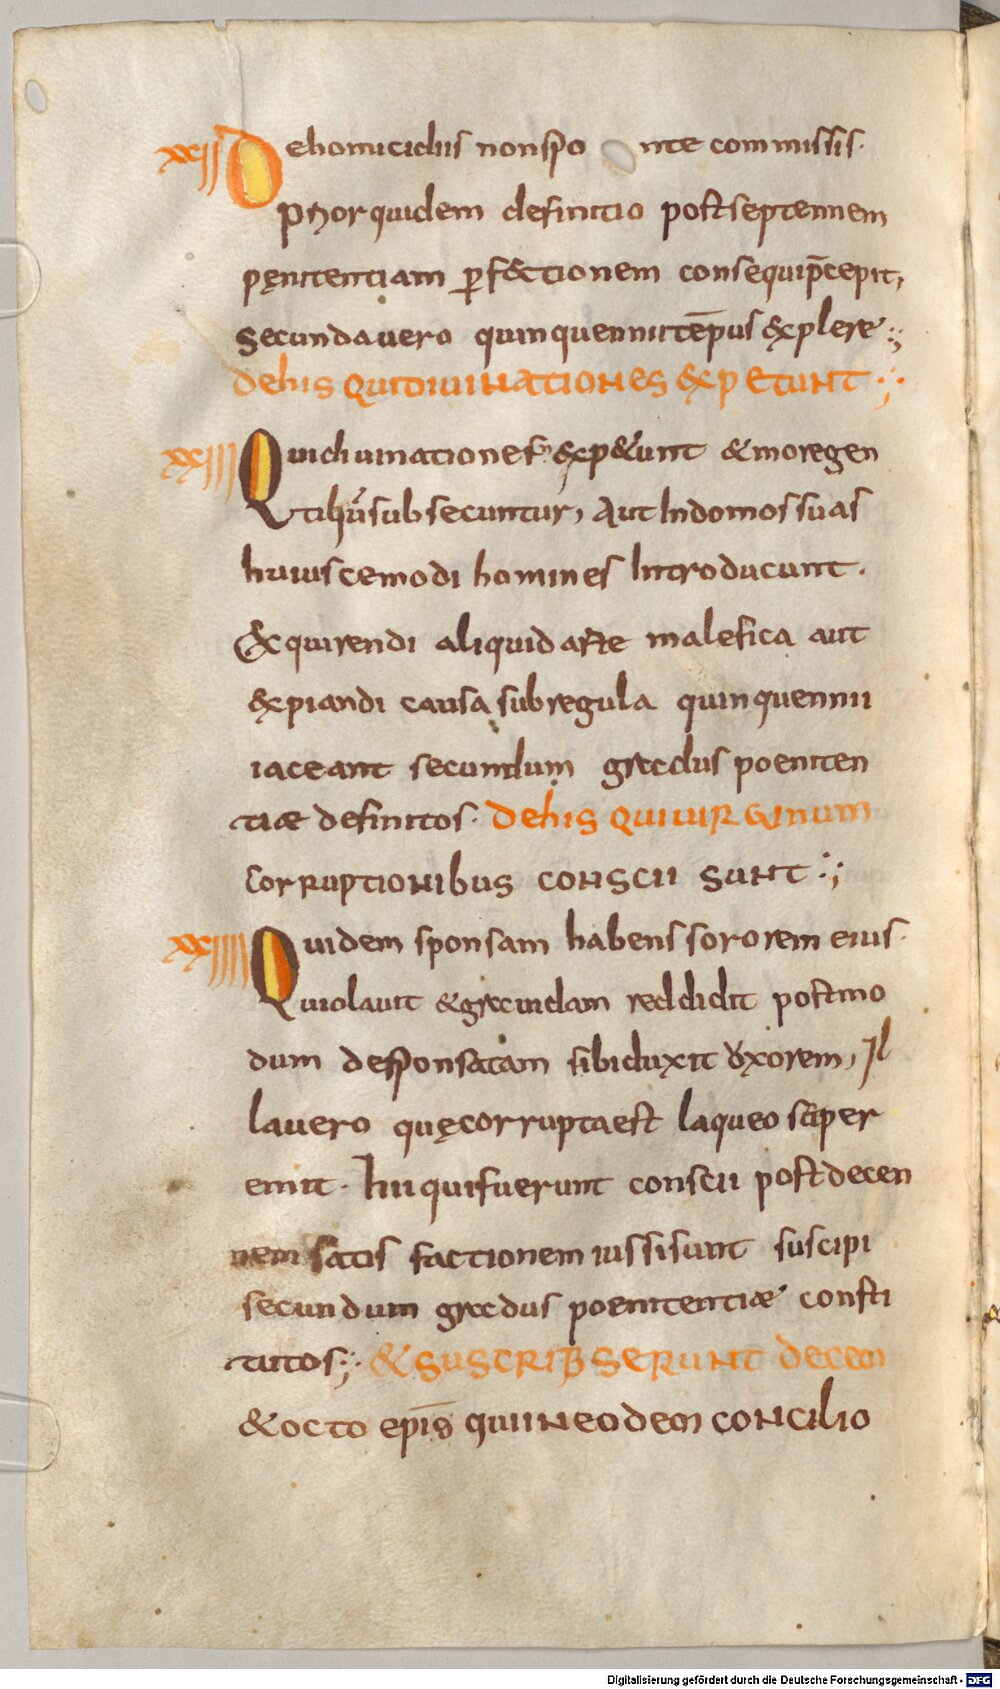 xxii De homicidiis non spo nte commissis·
prior quidem definitio post septennem
pęnitentiam perfectionem consequi p̄cepit,
secunda uero quinquennii tēpus explere·;
DE his QUI DIUINATIONES EXPETUNT·;
xxiii Qui diuinationes expetunt & more gen
tiliū subsecuntur, aut In domos suas
huiuscemodi homines Introducunt·
Exquirendi aliquid arte malefica aut
expiandi causa sub regula quinquennii
iaceant secundum gradus poeniten
tiae definitos· DE his QUI UIRGINUM
CorRUPTIONIbus CONSCII SUNT·;
xxiiii Quidem sponsam habens sororem eius·
uiolauit & grauidam reddidit postmo
dum desponsatam sibi duxit uxorem, Il
la uero quę corrupta est laqueo se per
emit· Hii qui fuerunt conscii post decen
nem satis factionem iussi sunt suscipi
secundum gradus poenitentiae consti
tutos·; & SUSCRIPSERUNT DECEM
& OCTO ep̄is QUI IN EODEM CONCILIO
Digitalisierung gefördert durch die Deutsche Forschungsgemeinschaft - DFG